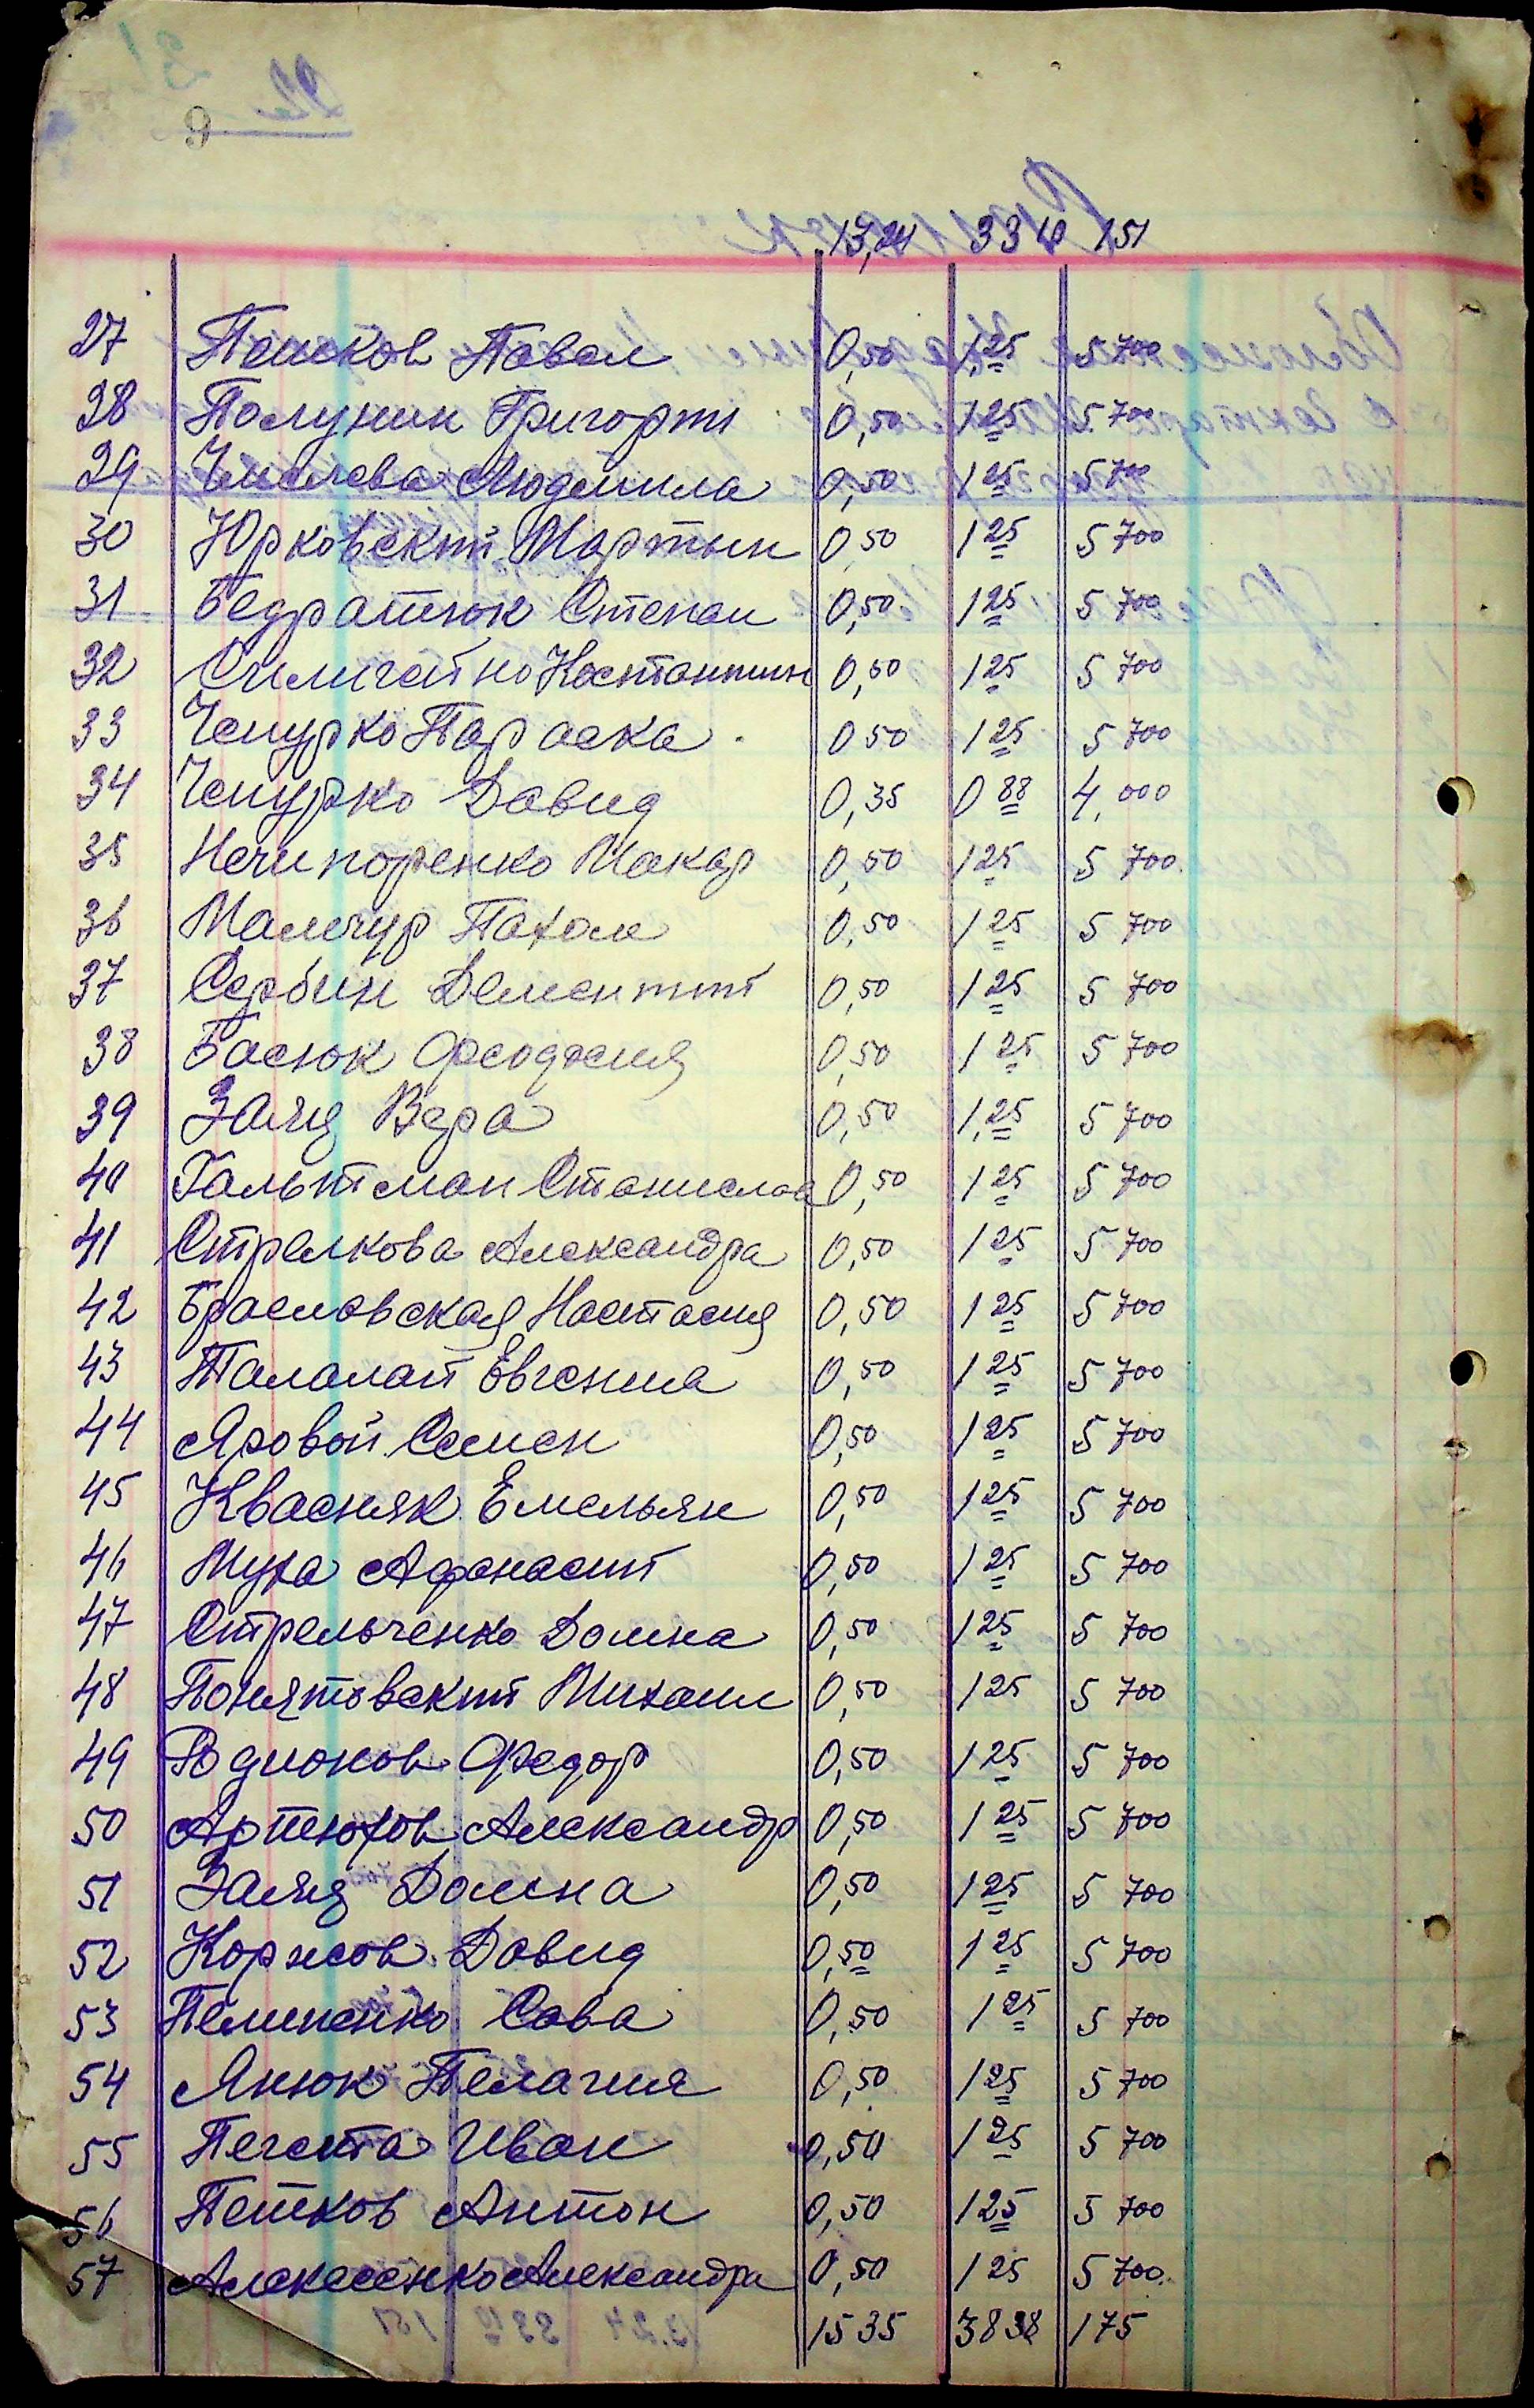 13,24 33 10 151
27 Пешков Павел 0,50 1,25 5 700
28 Полунин Григорий 0,50 1 25 5 700
29 Чмелева Людмила 0,50 1 25 5 700
30 Юрковский Мартын 0 50 1 25 5 700
31 Бедратюк Степан 0,50 1 25 5 700
32 Костантин 0,50 1 25 5 700
33 Чепурко Параска 0 50 1 25 5 700
34 Чепурко Давид 0,35 0 88 4,000
35 Нечипоренко Макар 0,50 1 25 5 700
36 Мамчур Пахом 0,50 1 25 5 700
37 Сербин Дементий 0,50 1 25 5 700
38 Басюк Феодосия 0,50 1 25 5 700
39 Заяц Вера 0,50 1,25 5 700
40 Гальтман Станислав 0,50 1 25 5 700
41 Стрелкова Александра 0,50 1 25 5 700
42 Браславская Настасия 0,50 1 25 5 700
43 Талалай Евгения 0,50 1 25 5 700
44 Яровой Семен 0,50 1 25 5 700
45 Квасняк Емельян 0,50 1 25 5 700
46 Муха Афанасий 0,50 1 25 5 700
47 Стрельченко Домна 0,50 1 25 5 700
48 Понятовский Михаил 0,50 1 25 5 700
49 Родионов Федор 0,50 1 25 5 700
50 Артюхов Александр 0,50 1 25 5 700
51 Заяц Домна 0,50 1 25 5 700
52 Коржов Давид 0,50 1 25 5 700
53 Сава 0,50 1 25 5 700
54 Янюк Пелагия 0,50 1 25 5 700
55 Иван 0,50 1 25 5 700
56 Пешков Антон 0,50 1 25 5 700
57 Алексеенко Александра 0,50 1 25 5 700
15 35 38 38 175